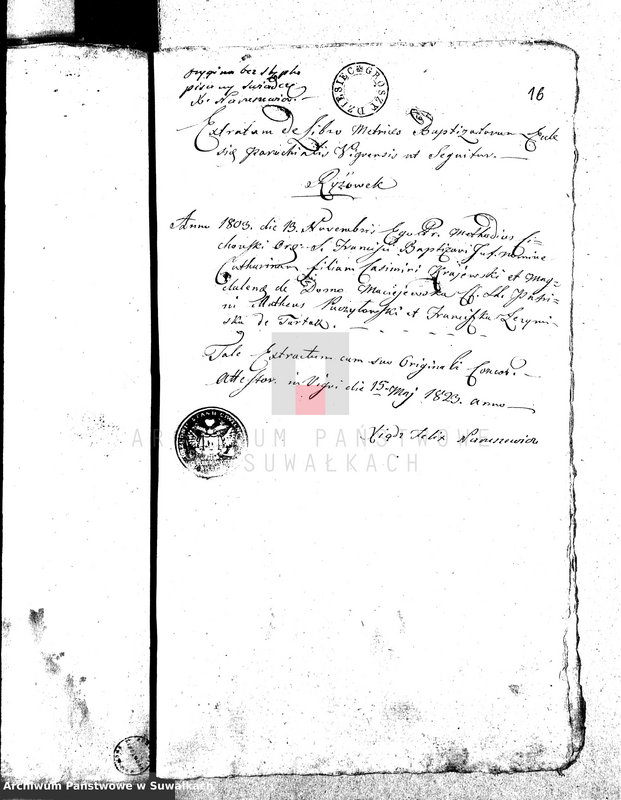 orygina bez stęplu
pisany świadczę
X. Naruszewicz
DZIESIĘĆ GROSZY
16
Extractum de Libro Metrices Baptizatorum Eccle
siæ Parochialis Vigrensis ut Sequitur. —
Ryżówek
Anno 1803. die 13. Novembris Ego Fr. Methodius Ci-
chowski Ord: S. Francisci Baptizavi Inf. nomine
Catharinam filiam Casimiri Krajewski et Mag-
dalenæ de Domo Maciejewska C. L. Patri-
ni Matheus Puczyłowski et Franciszka
ska de Tartak.
Tale Extractum cum suo Originali Concor.
Attestor. in Vigri die 15 Maj 1823. anno
Xiądz Felix Naruszewicz
ARCHIWUM PAŃSTWOWE
W SUWAŁKACH
Archiwum Państwowe w Suwałkach